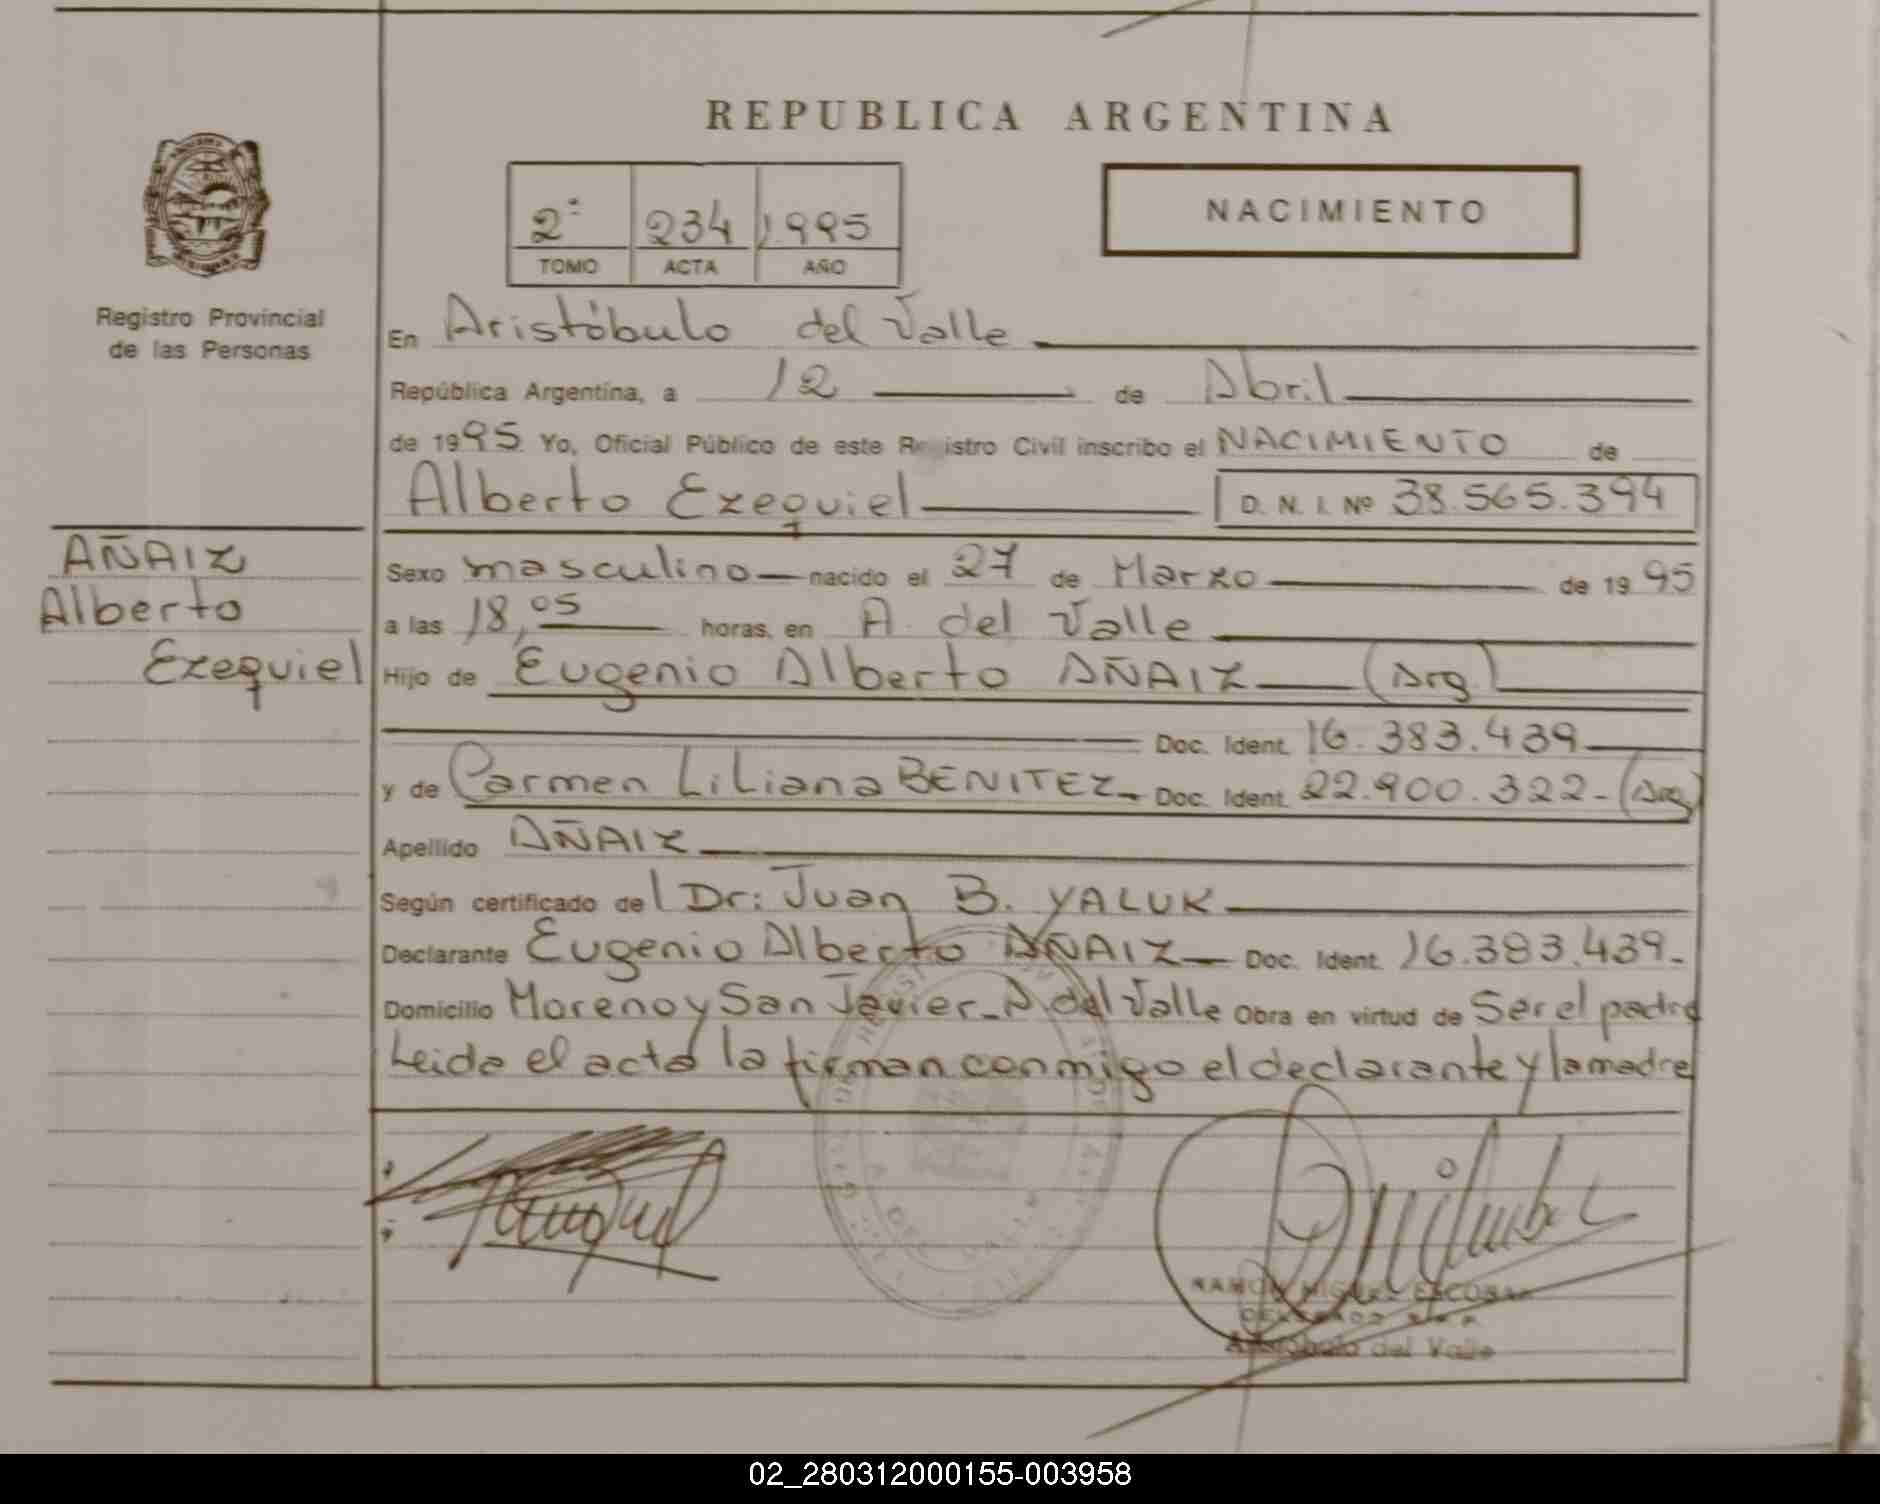 REPUBLICA ARGENTINA
2º 234 1995
TOMO ACTA AÑO
NACIMIENTO
Registro Provincial
de las Personas
En Aristóbulo del Valle
República Argentina, a 12 de Abril
de 1995 Yo, Oficial Público de este Registro Civil inscribo el NACIMIENTO de
Alberto Ezequiel D. N. I. Nº 38.565.394
AÑAIZ
Alberto
Ezequiel
Sexo masculino nacido el 27 de Marzo de 1995
a las 18,05 horas, en A. del Valle
Hijo de Eugenio Alberto AÑAIZ (Arg.)
Doc. Ident. 16.383.439
y de Carmen Liliana BENITEZ Doc. Ident. 22.900.322 - (Arg)
Apellido AÑAIZ
Según certificado del Dr: Juan B. YALUK
Declarante Eugenio Alberto AÑAIZ Doc. Ident. 16.383.439-
Domicilio Moreno y San Javier - A. del Valle Obra en virtud de Ser el padre
Leida el acta la firman conmigo el declarante y la madre
RAMON MIGUEL ESCOBAR
Aristóbulo del Valle
02_280312000155-003958